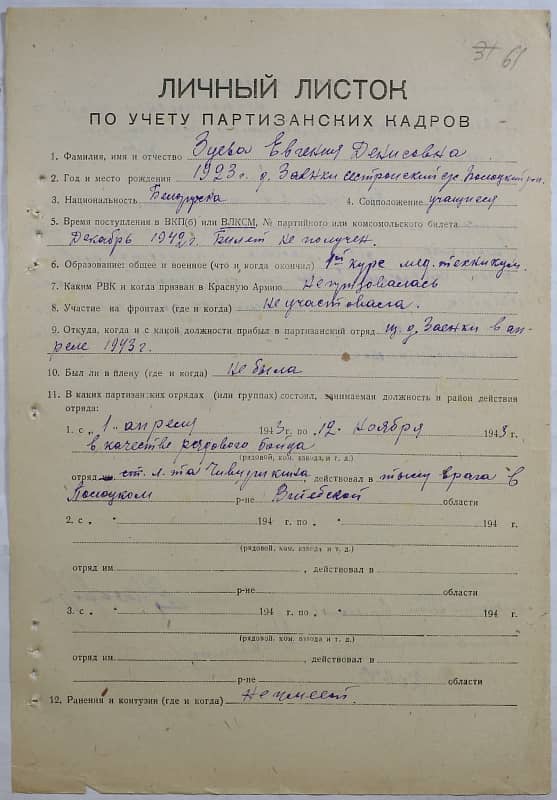 31 61
ЛИЧНЫЙ ЛИСТОК
ПО УЧЕТУ ПАРТИЗАНСКИХ КАДРОВ
1. Фамилия, имя и отчество Зуева Евгения Денисовна
2. Год и место рождения 1923 г. д. Заенки Полоцкий
3. Национальность Белоруска 4. Соцположение учащиеся
5. Время поступления в ВКП(б) или ВЛКСМ, № партийного или комсомольского билета
Декабрь 1942 г. Билет не получен.
6. Образование: общее и военное (что и когда окончил) курс мед. техникум.
7. Каким РВК и когда призван в Красную Армию Не призовалась
8. Участие на фронтах (где и когда) Не
9. Откуда, когда и с какой должности прибыл в партизанский отряд из д. Заенки в ап-
реле 1943 г.
10. Был ли в плену (где и когда) Не была
11. В каких партизанских отрядах (или группах) состоял, занимаемая должность и район действия
отряда:
1. с „1" апреля 1943 г. по „12" Ноября 1943 г.
в качестве рядового бойца
(рядовой, ком. взвода и т. д.)
отряд ст. л-та действовал в тылу врага в
Полоцком р-не Витебской области
2. с „ " 194 г. по „ " 194 г.
(рядовой, ком. взвода и т. д.)
отряд им , действовал в
р-не области
3. с „ " 194 г. по „ " 194 г.
(рядовой, ком. взвода и т. д.)
отряд им , действовал в
р-не области
12. Ранения и контузии (где и когда) Не имеет.